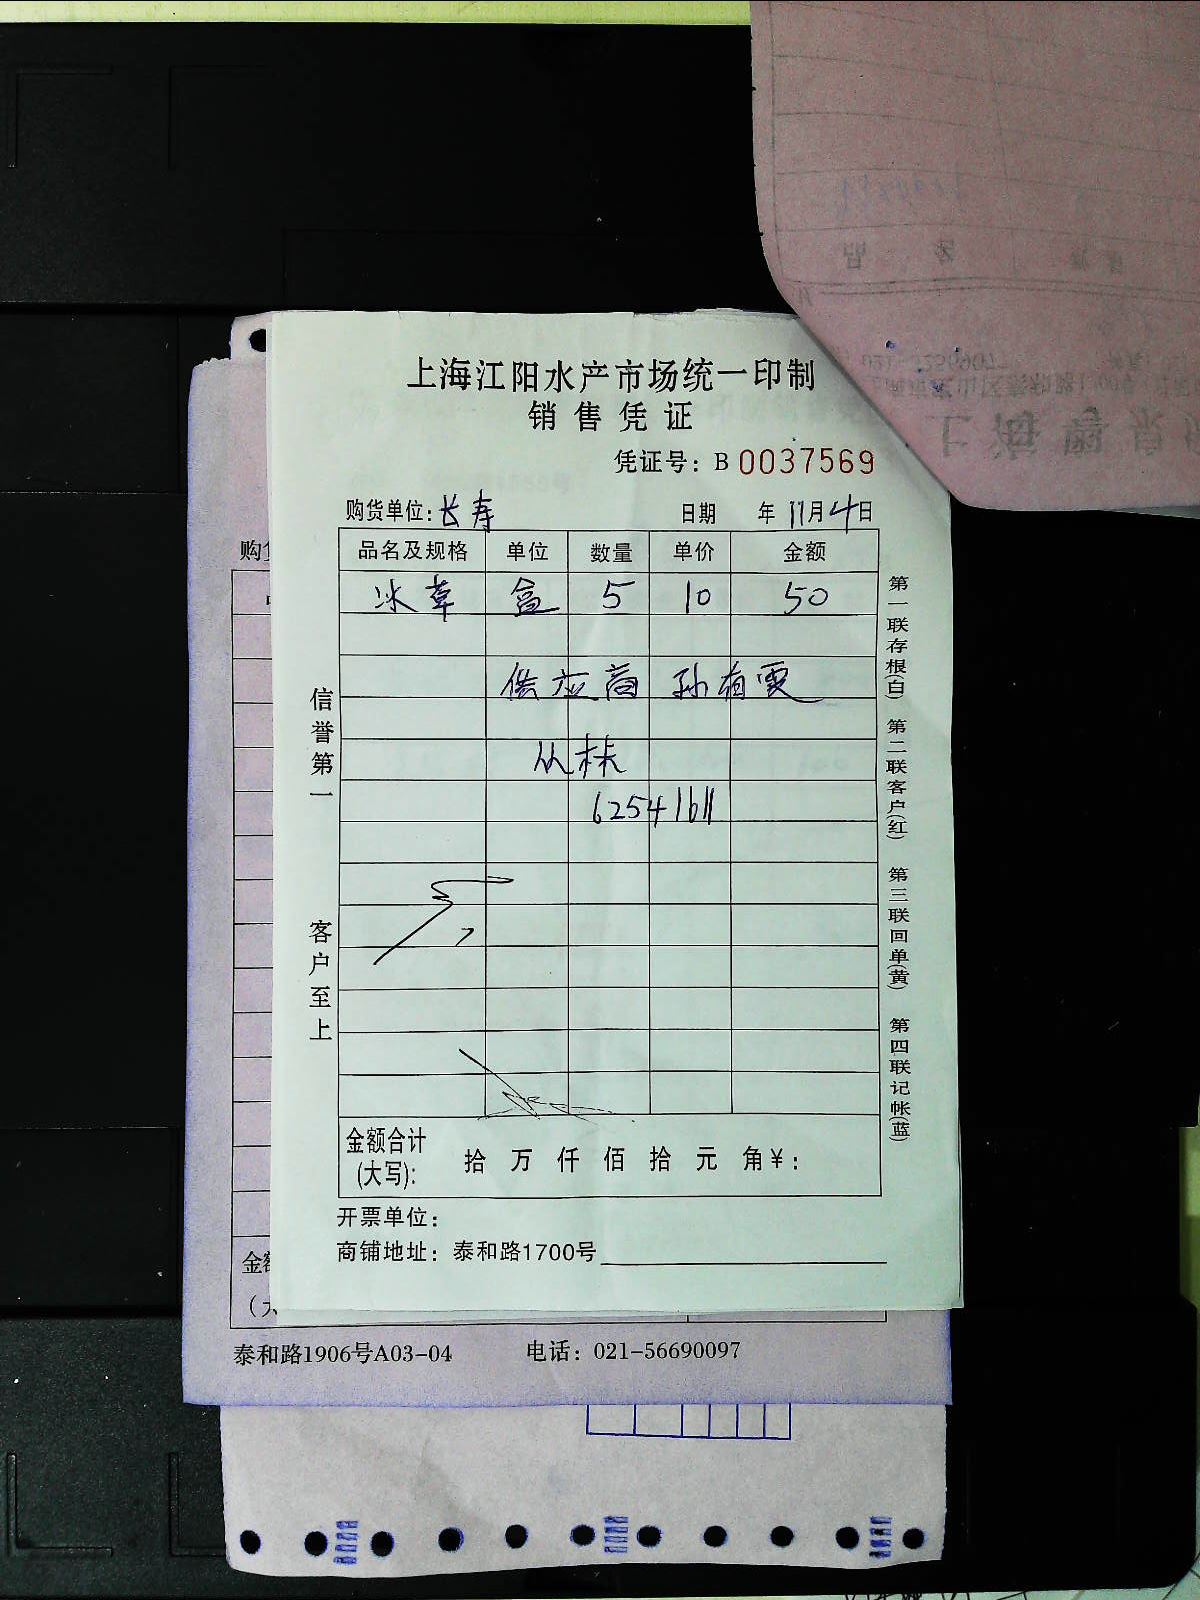 上海江阳水产市场统一印制
销售凭证
凭证号：B 0037569
购货单位:长寿 日期 年11月4日
品名及规格 单位 数量 单价 金额
冰草 盒 5 10 50
供应商 孙有雯
从林
62541611
信誉第一
客户至上
第一联存根(白) 第二联客户(红) 第三联回单(黄) 第四联记帐(蓝)
金额合计
(大写): 拾 万 仟 佰 拾 元 角¥:
开票单位：
商铺地址：泰和路1700号
购
金
（大
泰和路1906号A03-04 电话：021-56690097